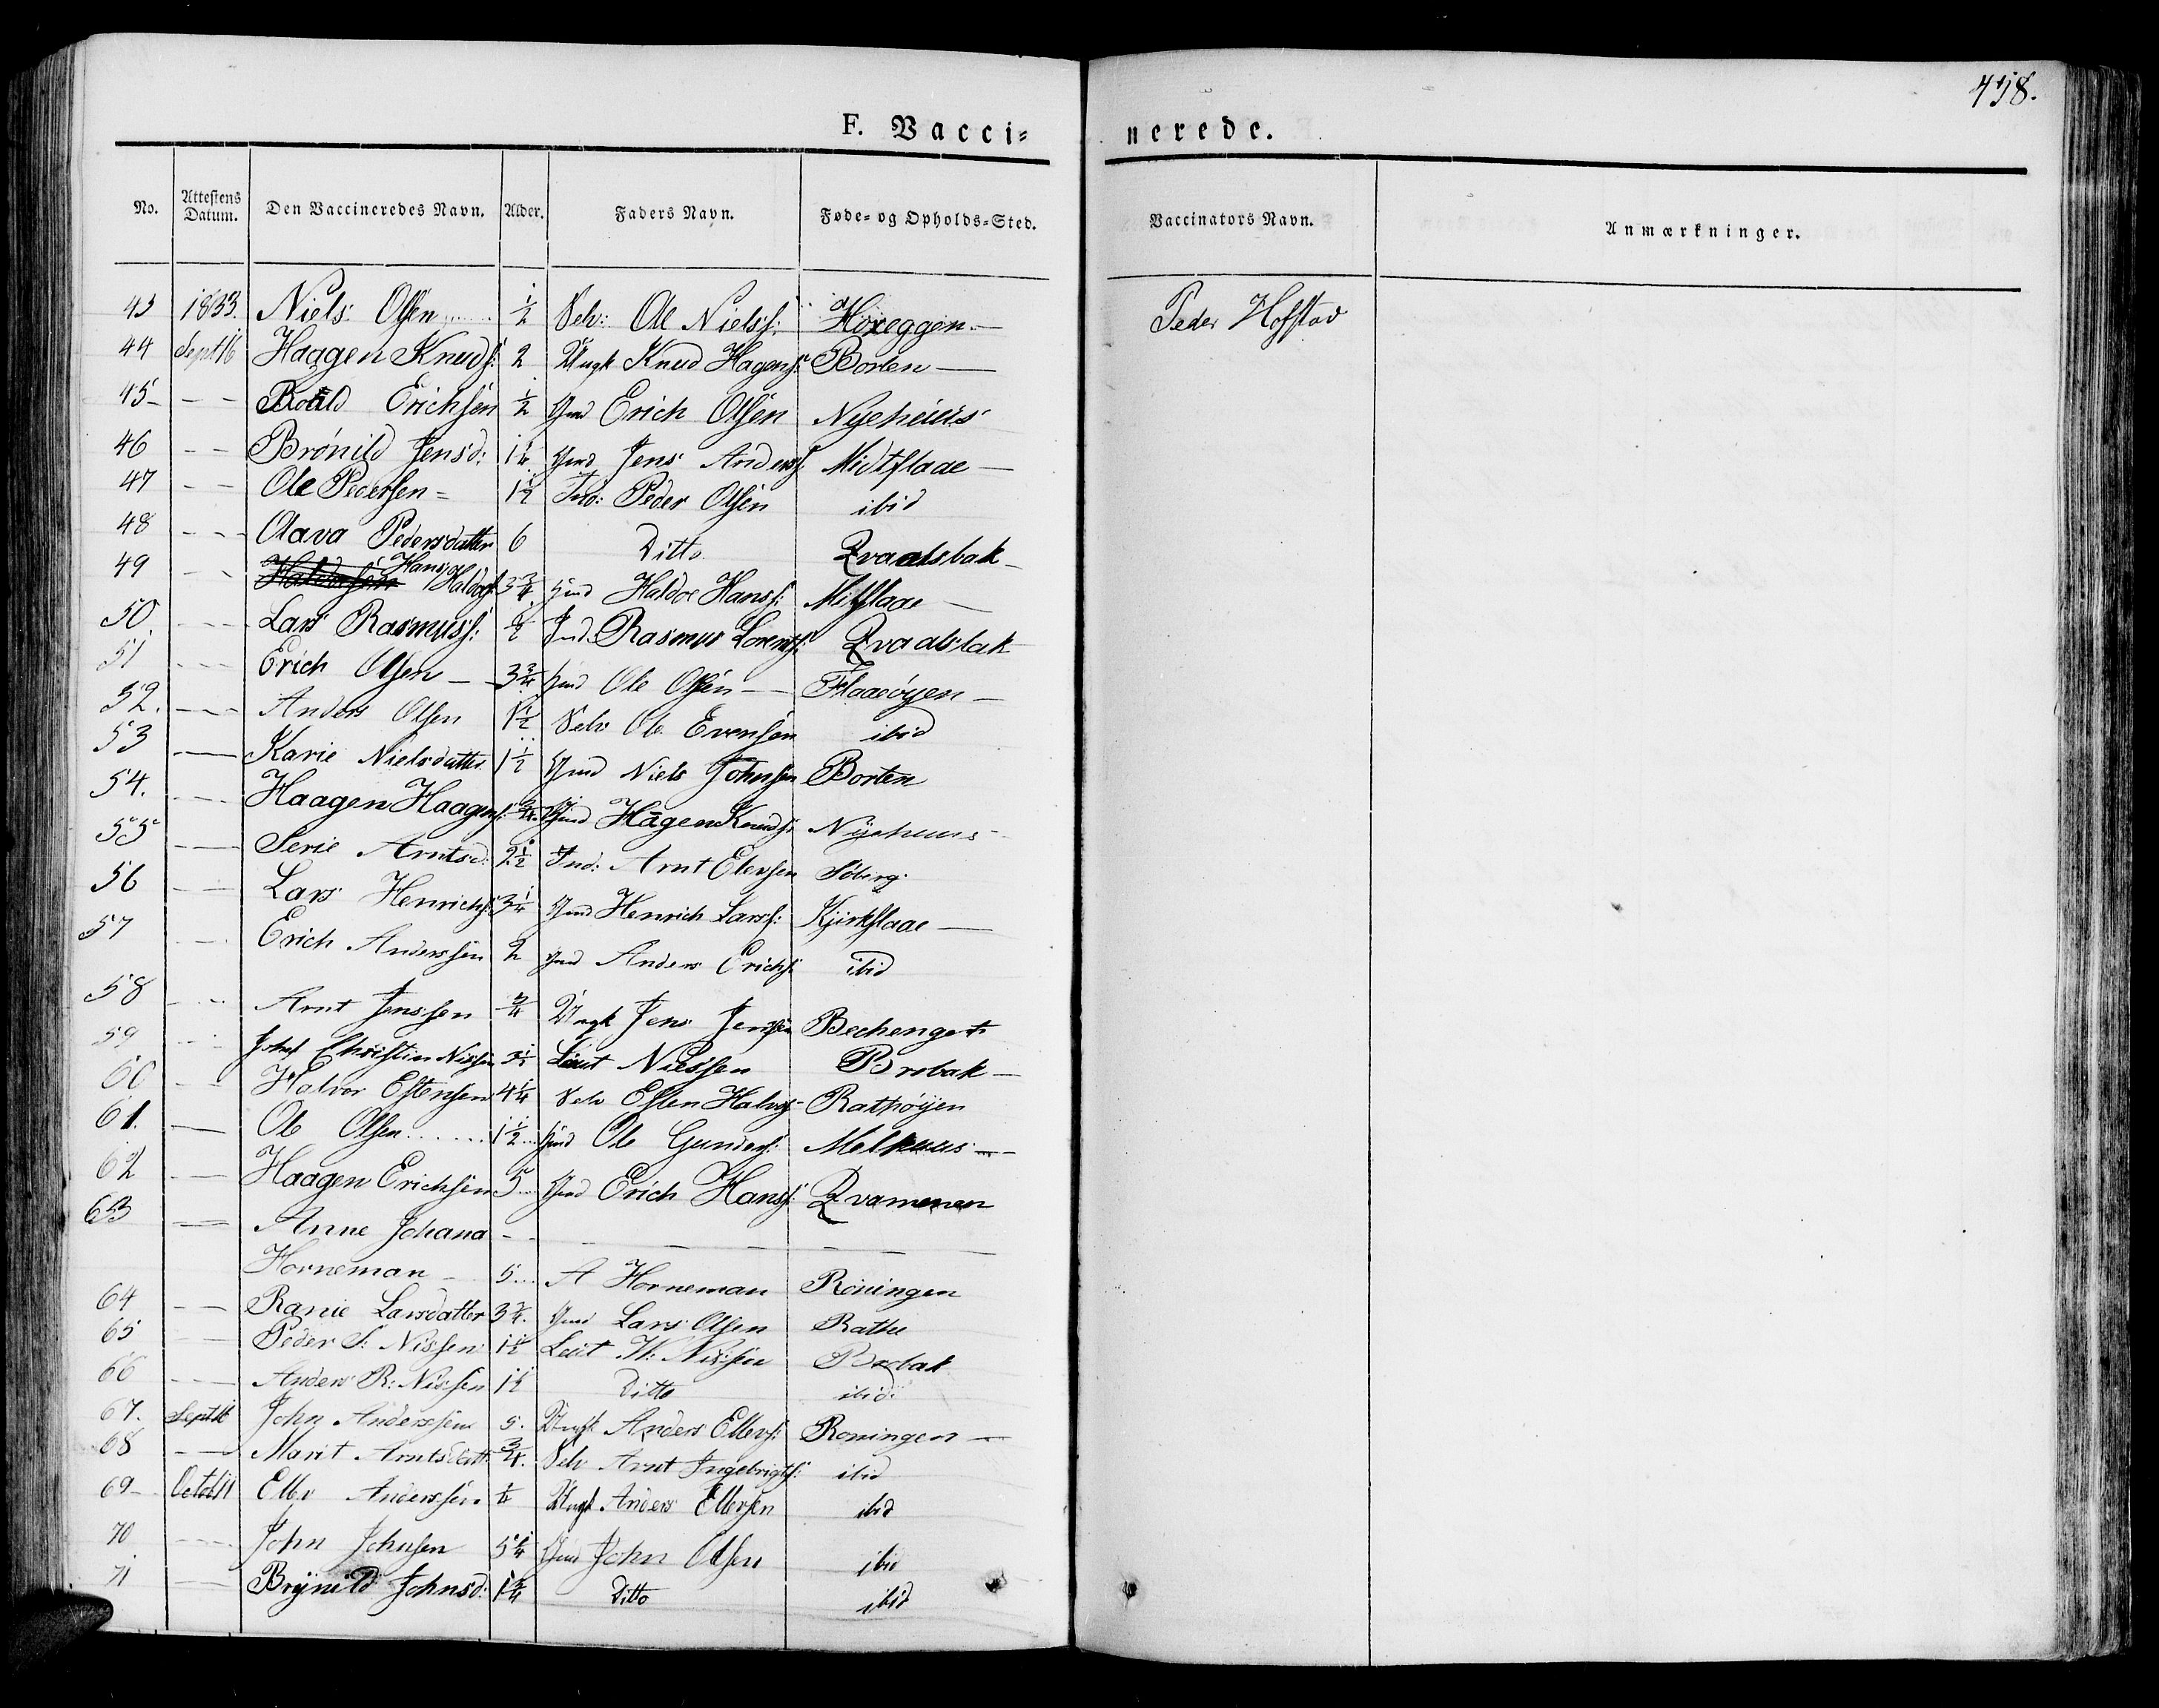 418.
F. Vacci=nerede.
No. Attestens Datum. Den Vaccineredes Navn. Alder. Faders Navn. Føde= og Opholds=Sted. Vaccinators Navn. Anmærkninger.
43 1833. Niels Olsen 1/2 Selv: Ole Nielss: Hoxeggen — Peder Hofstad
44 Sept 16 Haagen Knuds: 2 Knud Hagens: Borten —
45 - - Erichsen 1/2 Gmd Erich Olsen Nyehuus
46 - - Brönild Jensd: 1 1/4 Gmd Jens Anderss: Midtflaae —
47 - - Ole Pedersen = 1 1/2 Ind: Peder Olsen ibid
48 - - - Olava Pedersdatter 6 Ditto Qvaalsbak
49 - - Hans Haldors: 3 3/4 Haldor Hanss: Mitflaae —
50 - - - Lars Rasmuss: 1/2 Ind. Rasmus Lorents: Qvaalsbak
51 - - - Erich Olsen - - 3 3/4 Ole Olsen — Flaaeöyen —
52. - - - Anders Olsen 1 1/2 Selv Ole Evensen ibid
53 — Karie Nielsdatter 1 1/2 Gmd Niels Johnsen Borten
54. - - - Haagen Haagens: 3/4 Gmd Hagen Knuds: Nyehuus
55 — Serie Arntsd: 2 1/2 Ind: Arnt Elevsen Söberg
56 - - Lars Henrichs: 3 1/4 Gmd Henrich Larss: Kjirkflaae —
57 - - Erich Anderssen 2 Gmd Anders Erichs: ibid
58 - - - Arnt Jenssen 3/4 Jens Jensen Bechenget
59 - - Christian Nissen 3 1/2 Lieut Nissen Brobak —
60 - - Halvor Estensen 4 1/4 Selv Esten Halvs: Rathöyen
61. — Ole Olsen 1 1/2 Ole Gunders: Melhuus - -
62 — Haagen Erichsen 5 Gmd Erich Hanss: Qvammen
63 — Anne Johana - -
Horneman 5 A Horneman Röningen
64 - - Ranie Larsdatter 3 3/4. Gmd Lars Olsen Rathe
65 - - Peder S: Nissen 1 1/2 Leut H: Nissen Brobak
66 - - - Anders R: Nissen 1 1/2 Ditto ibid:
67. Sept 16 John Anderssen 5. Anders Ellevs: Roningen —
68 - - Marit Arntsdatt: 3/4. Selv Arnt Ingebrigts: ibid
69 - Octob 11 Ellev Anderssen 1/4 Anders Ellevsen ibid
70 - - - John Johnsen 5 1/4 Gmd John Olsen ibid
71 — Brynild Johnsd: 1 3/4 Ditto ibid